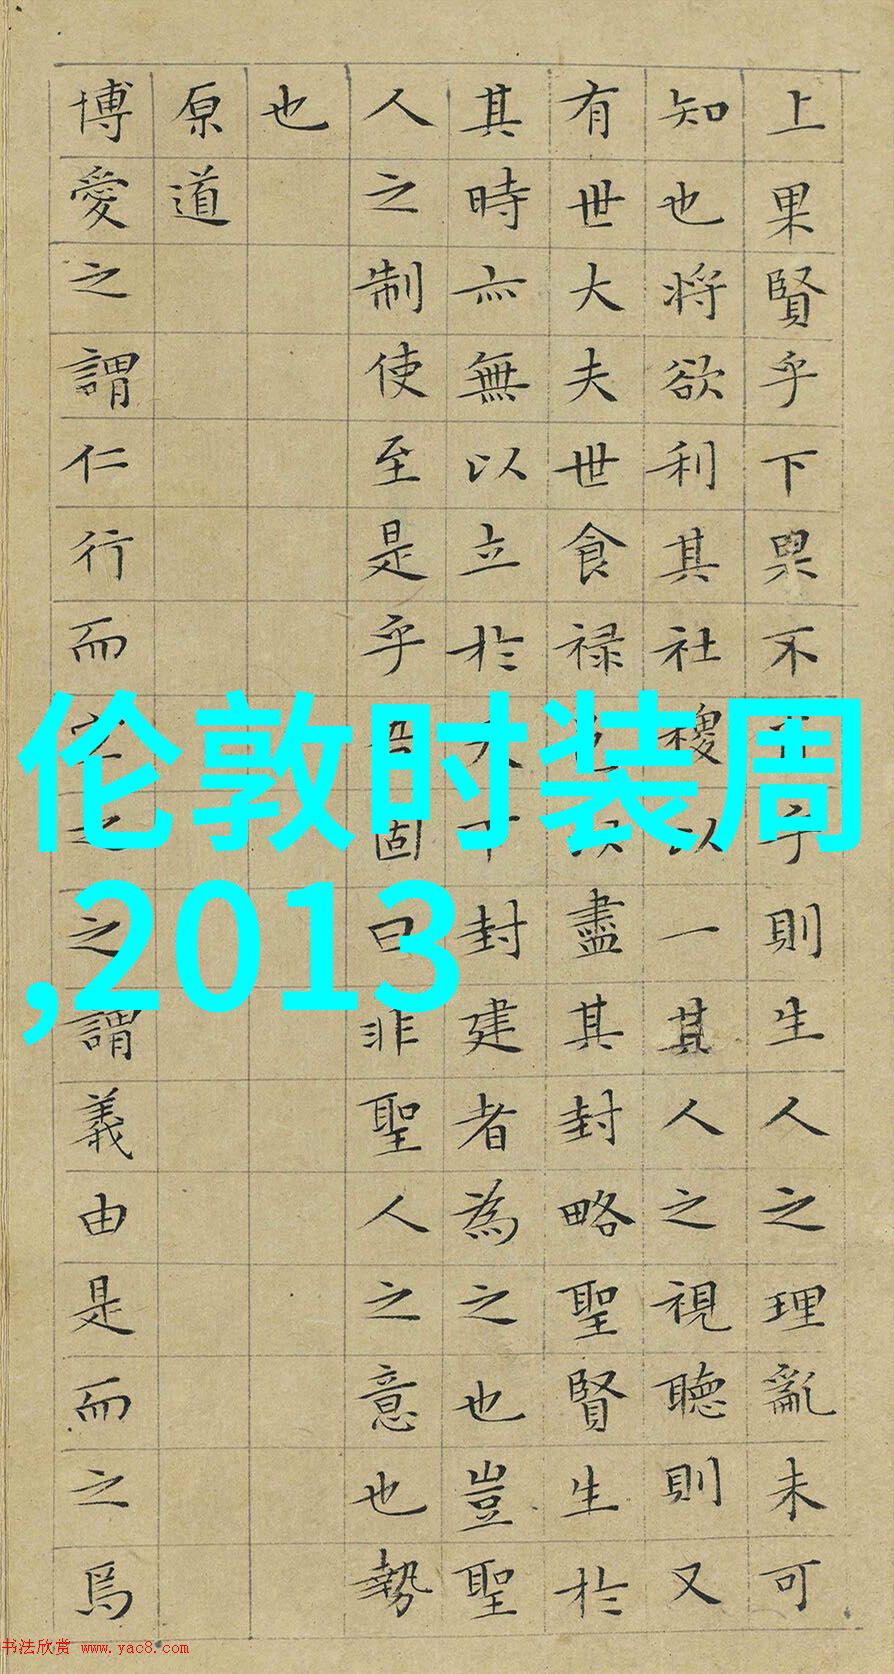 上果賢乎下果不肖乎則生人之理亂未可
知也將欲利其社稷以一其人之視聽則又
有世大夫世食禄邑以盡其封略聖賢生於
其時亦無以立於天下封建者為之也豈聖
人之制使至是乎吾固曰非聖人之意也勢
也
原道
博愛之謂仁行而宜之之謂義由是而之焉
伦敦时装周
,2013
书法欣赏 www.yac8.com